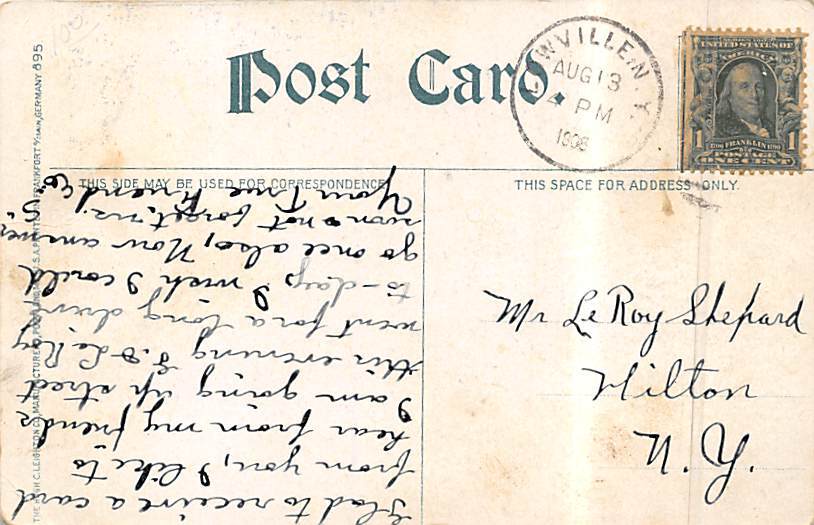 Post Card
WVILLE, N.Y.
AUG 13
4 PM
UNITED STATES OF
AMERICA
1 FRANKLIN 1
POSTAGE
ONE CENT
THIS SIDE MAY BE USED FOR CORRESPONDENCE
THIS SPACE FOR ADDRESS ONLY.
Mr LeRoy Shepard
Hilton
N. Y.
Glad to receive a card
from you, I like to
hear from my friends
I am going up street
this evening E. & LeRoy
went for a long drive
to-day I wish I could
go once also, Now answer
soon & not forget me.
Your True Friend
THE HUGH C. LEIGHTON CO., MANUFACTURERS, PORTLAND, ME., U.S.A. PRINTED IN FRANKFORT O/MAIN, GERMANY 895.